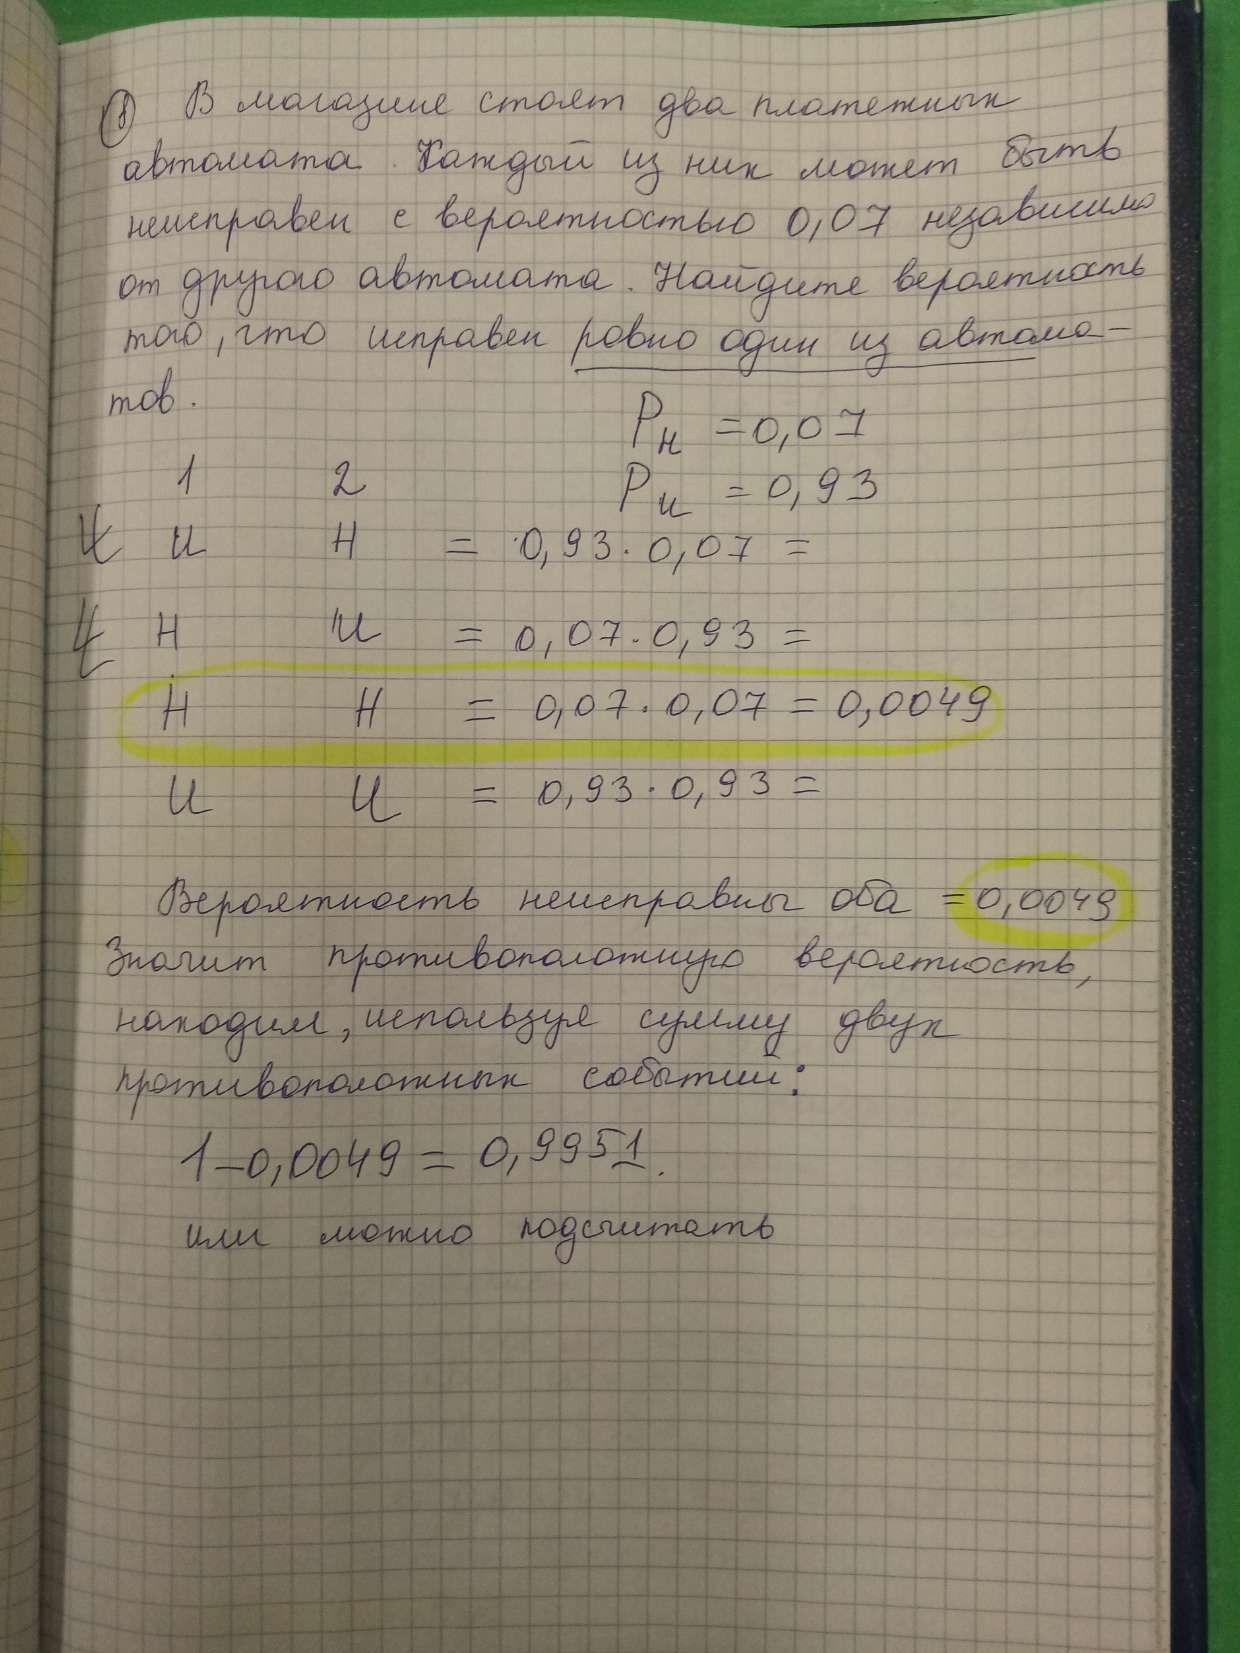 8 В магазине стоят два платежных
автомата. Каждый из них может быть
неисправен с вероятностью 0,07 независимо
от другого автомата. Найдите вероятность
того, что исправен ровно один из автома-
тов.
Pн = 0,07
1 2
Pи = 0,93
И Н = 0,93 · 0,07 =
Н И = 0,07 · 0,93 =
Н Н = 0,07 · 0,07 = 0,0049
И И = 0,93 · 0,93 =
Вероятность неисправны оба = 0,0049
Значит противоположную вероятность,
находим, используя сумму двух
противоположных событий:
1 – 0,0049 = 0,9951.
или можно подсчитать